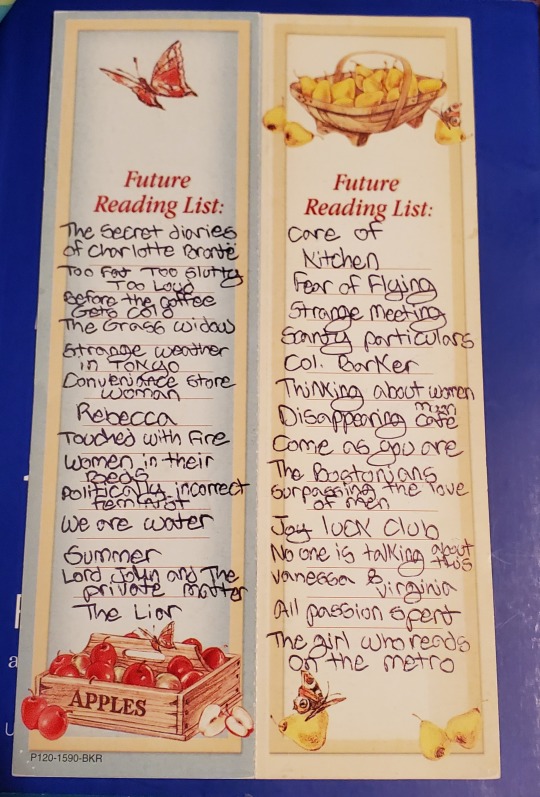 Future
Reading List:
The Secret diaries
of Charlotte Brontë
Too Fat Too Slutty
Too Loud
Before the coffee
Gets Cold
The Grass widow
Strange weather
in Tokyo
Convenience Store
woman
Rebecca
Touched with Fire
Women in their
Beds
Politically incorrect
feminist
We are water
Summer
Lord John and The
private matter
The Liar
APPLES
P120-1590-BKR
Future
Reading List:
Care of
Kitchen
Fear of Flying
Strange Meeting
Scanty particulars
Col. Barker
Thinking about women
men
Disappearing cafe
Come as you are
The Bostonians
Surpassing the love
of men
Joy luck club
No one is talking about
this
Vanessa &
Virginia
All passion spent
The girl who reads
on the metro